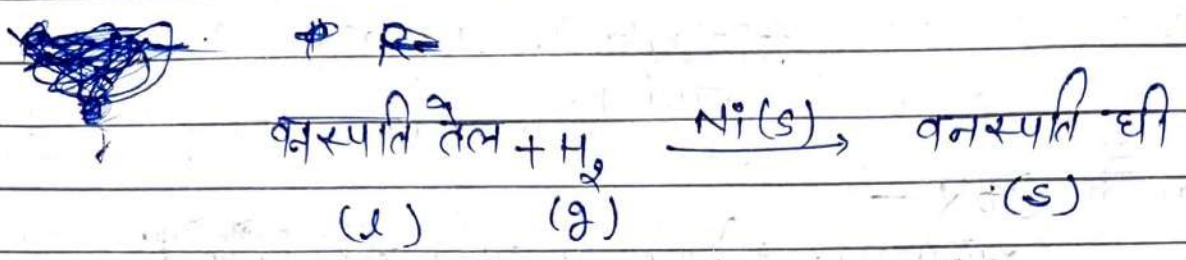 वनस्पति तेल + H₂ Ni(s)→ वनस्पति घी
(l) (g) (s)